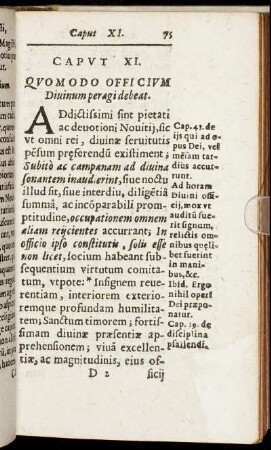 Caput XI. 75
CAPVT XI.
QVOMODO OFFICIVM
Divinum peragi debeat.
ADdictissimi sint pietati
ac devotioni Novitij, sic
vt omni rei, divinæ servitutis
pēsum præferendū existiment;
Subitò ac campanam ad divina
sonantem inaud.erint, siue noctu
illud sit, siue interdiu, diligētiā
summâ, ac incōparabili prom-
ptitudine, occupationem omnem
aliam reijcientes accurrant; In
officio ipso constituti, solis esse
non licet, socium habeant sub-
sequentium virtutum comita-
tum, vtpote: * Insignem reue-
rentiam, interiorem exterio-
remque profundam humilita-
tem; Sanctum timorem; fortis-
simam divinæ præsentiæ ap-
prehensionem; vivâ excellen-
tiæ, ac magnitudinis, eius of-
D 2 ficij
Cap. 43. de
ijs qui ad o-
pus Dei, vel
mēsam tar-
dius accur-
runt.
Ad horam
Divini offi-
cij, mox vt
auditū fue-
rit signum,
relictis om-
nibus quęli-
bet fuerint
in mani-
bus, &c.
Ibid. Ergo
nihil operi
Dei præpo-
natur.
Cap. 19. de
disciplina
psallendi.